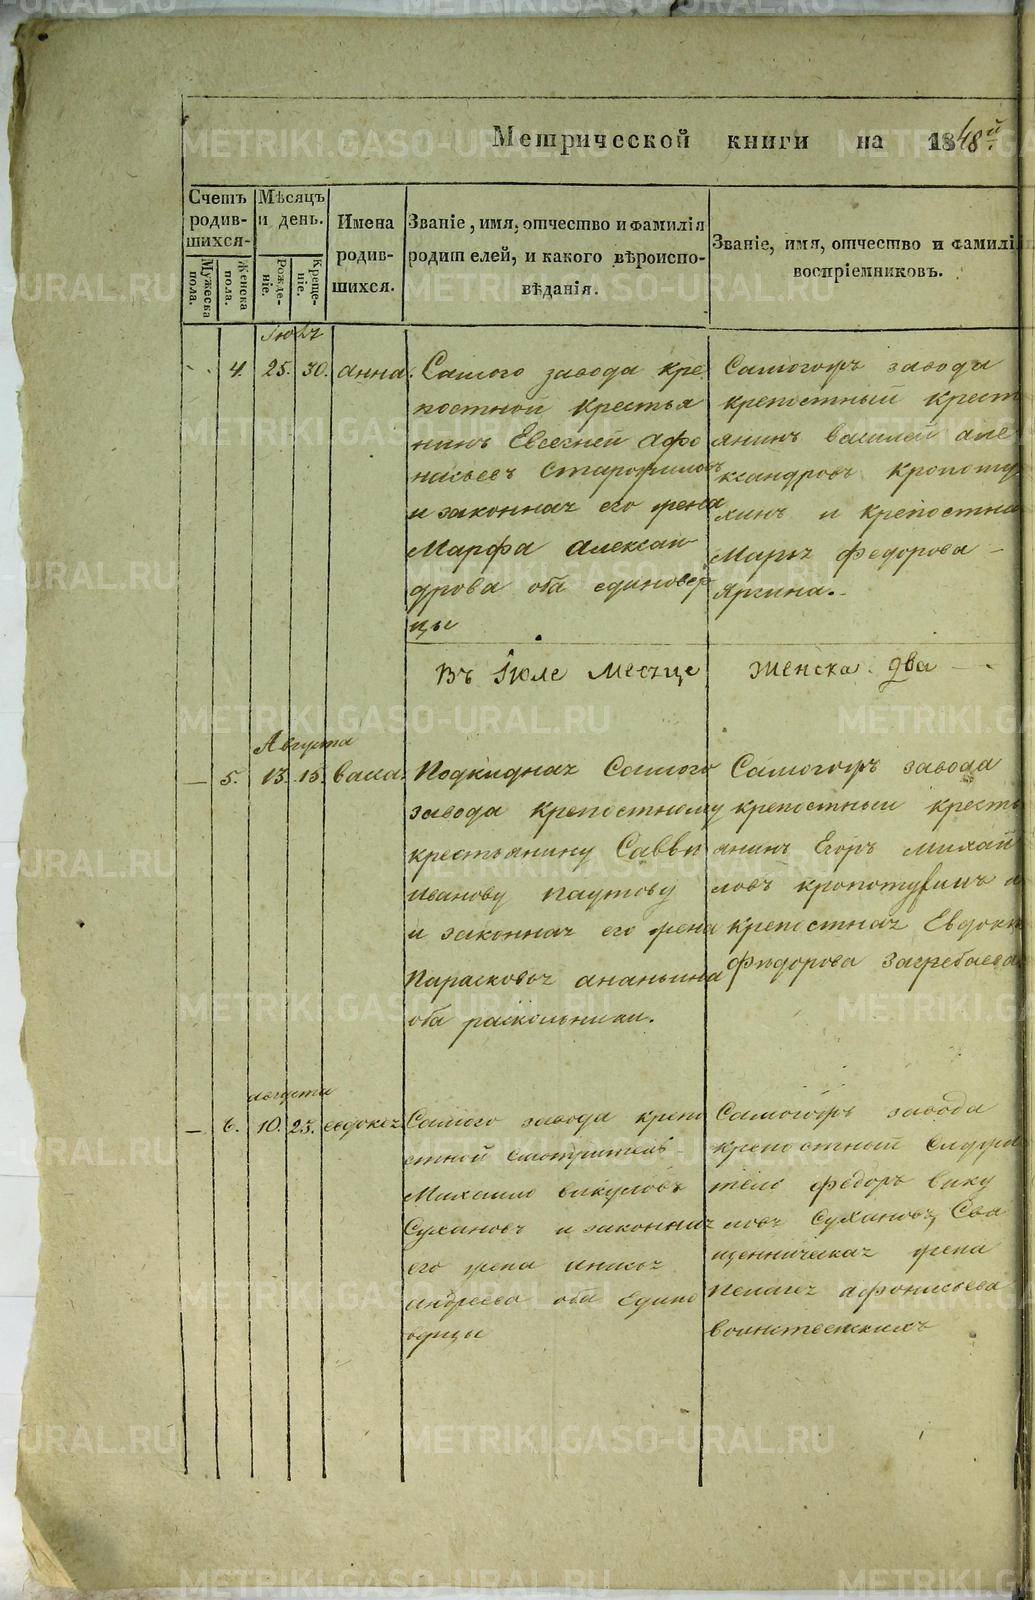 Метрической книги на 1848й.
Счетъ родив-шихся-
Мужеска пола.
Женска пола.
Мѣсяцъ и день.
Рожде-ніе.
Креще-ніе.
Имена родив-шихся.
Званіе, имя, отчество и фамилія
родителей, и какого вѣроиспо-
вѣданія.
Званіе, имя, отчество и фамилі
воспріемниковъ.
4. 25. 30. анна.
Самого завода кре
постной крестья
нинъ Евсегней афо
насьевъ
и законная его жена
Марфа Алексан
дрова оба единовер
цы
Самогожъ завода
крепостный крест
янинъ василей але
ксандровъ Кропоту
хинъ и крепостна
Марья федорова –
Яргина.-
Въ Іюле месяце
женска два —
Августа
— 5. 13. 15. васса.
Подкидная Самого
завода крепостному
крестьянину Савви
Иванову Паутову
и законная его жена
Парасковья ананьина
оба раскольники.
Самогожъ завода
крепостный кресть
янинъ Егоръ михай
ловъ кропотухинъ и
крепостная Евдоки
Фидорова Загребаева
августа
— 6. 10. 25. евдокея
Самого завода крепо
стной смотритель
Михаило викуловъ
Сухановъ и законная
его жена анисья
андреева оба Едино
верцы
Самогожъ завода
крепостный
федоръ вику
ловъ Сухановъ, Свя
щенническая жена
Пелагея афонисьева